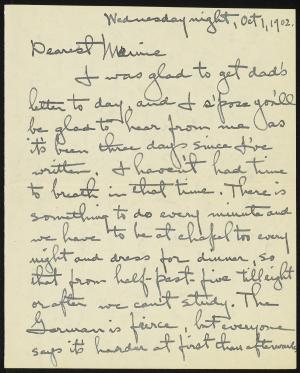 Wednesday night, Oct 1, 1902.
Dearest
I was glad to get dad's
letter to day, and I s'pose you'll
be glad to hear from me as
it's been three days since I've
written. I haven't had time
to breath in that time. There is
something to do every minute and
we have to be at chapel too every
night and dress for dinner, so
that from half-past-five till eight
or after we can't study. The
German is fierce, but everyone
says it's harder at first than afterwards